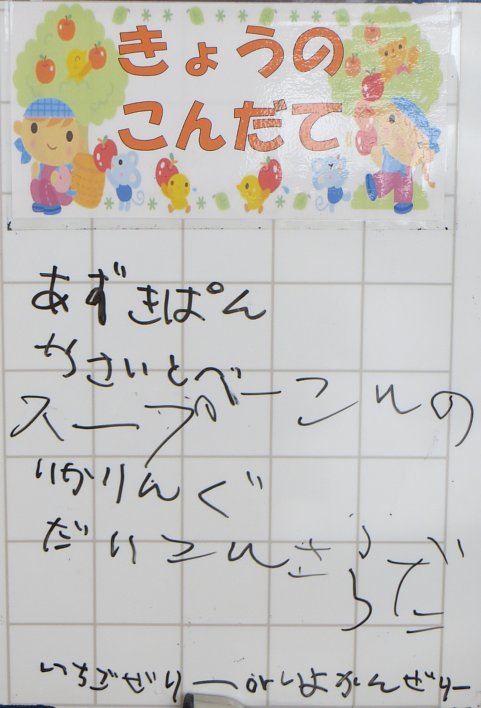 きょうの
こんだて
あずきぱん
やさいとべーこんの
スープ
いかりんぐ
だいこんさらだ
いちごぜりー orいよかんぜりー